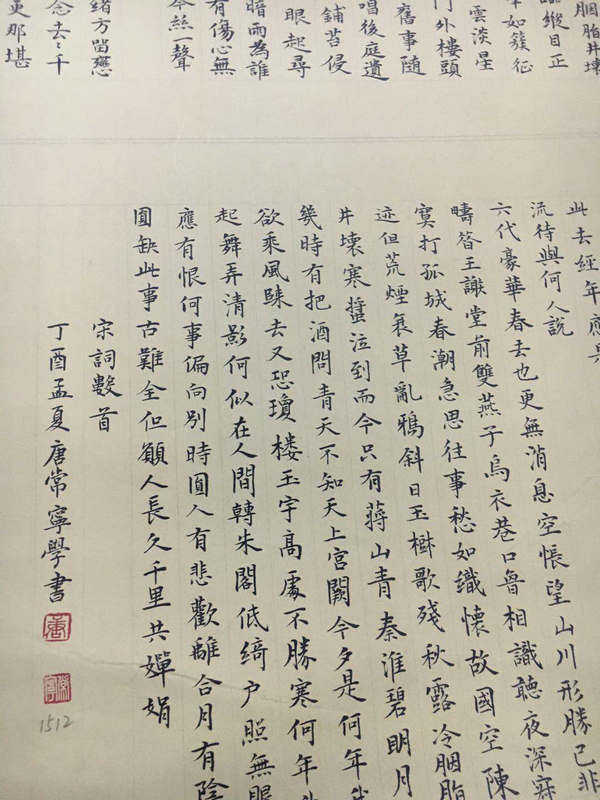 胭脂井壞
臨縱目正
如簇征
雲淡星
門外樓頭
舊事隨
唱後庭遺
鋪苔侵
眼起尋
暗雨為誰
有傷心無
絲一聲
緒方留戀
念去々千
更那堪
此去經年應是
流待與何人說
六代豪華春去也更無消息空悵望山川形勝已非
疇昔王謝堂前雙燕子烏衣巷口曾相識聽夜深寂
寞打孤城春潮急思往事愁如織懷故國空陳
迹但荒煙衰草亂鴉斜日玉樹歌殘秋露冷胭脂
井壞寒螿泣到而今只有蔣山青秦淮碧明月
幾時有把酒問青天不知天上宮闕今夕是何年我
欲乘風歸去又恐瓊樓玉宇高處不勝寒何年
起舞弄清影何似在人間轉朱閣低綺户照無眠
應有恨何事偏向別時圓人有悲歡離合月有陰
圓缺此事古難全但願人長久千里共嬋娟
宋詞數首
丁酉孟夏唐常寧學書
1512